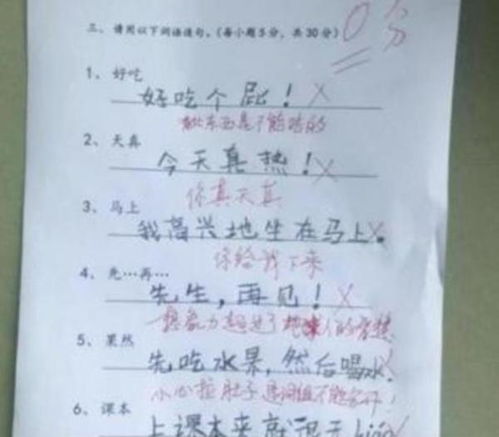 三、请用以下词语造句。(每小题5分，共30分)
0分
1、好吃
好吃个屁！
这东西是不能吃的
2、天真
今天真热！
你真天真
3、马上
我高兴地坐在马上。
你给我下来
4、先…再…
先生，再见！
想象力超过了地球人的智慧
5、果然
先吃水果，然后喝水。
小心拉肚子 是词组不能分开！
6、课本
上课本来就